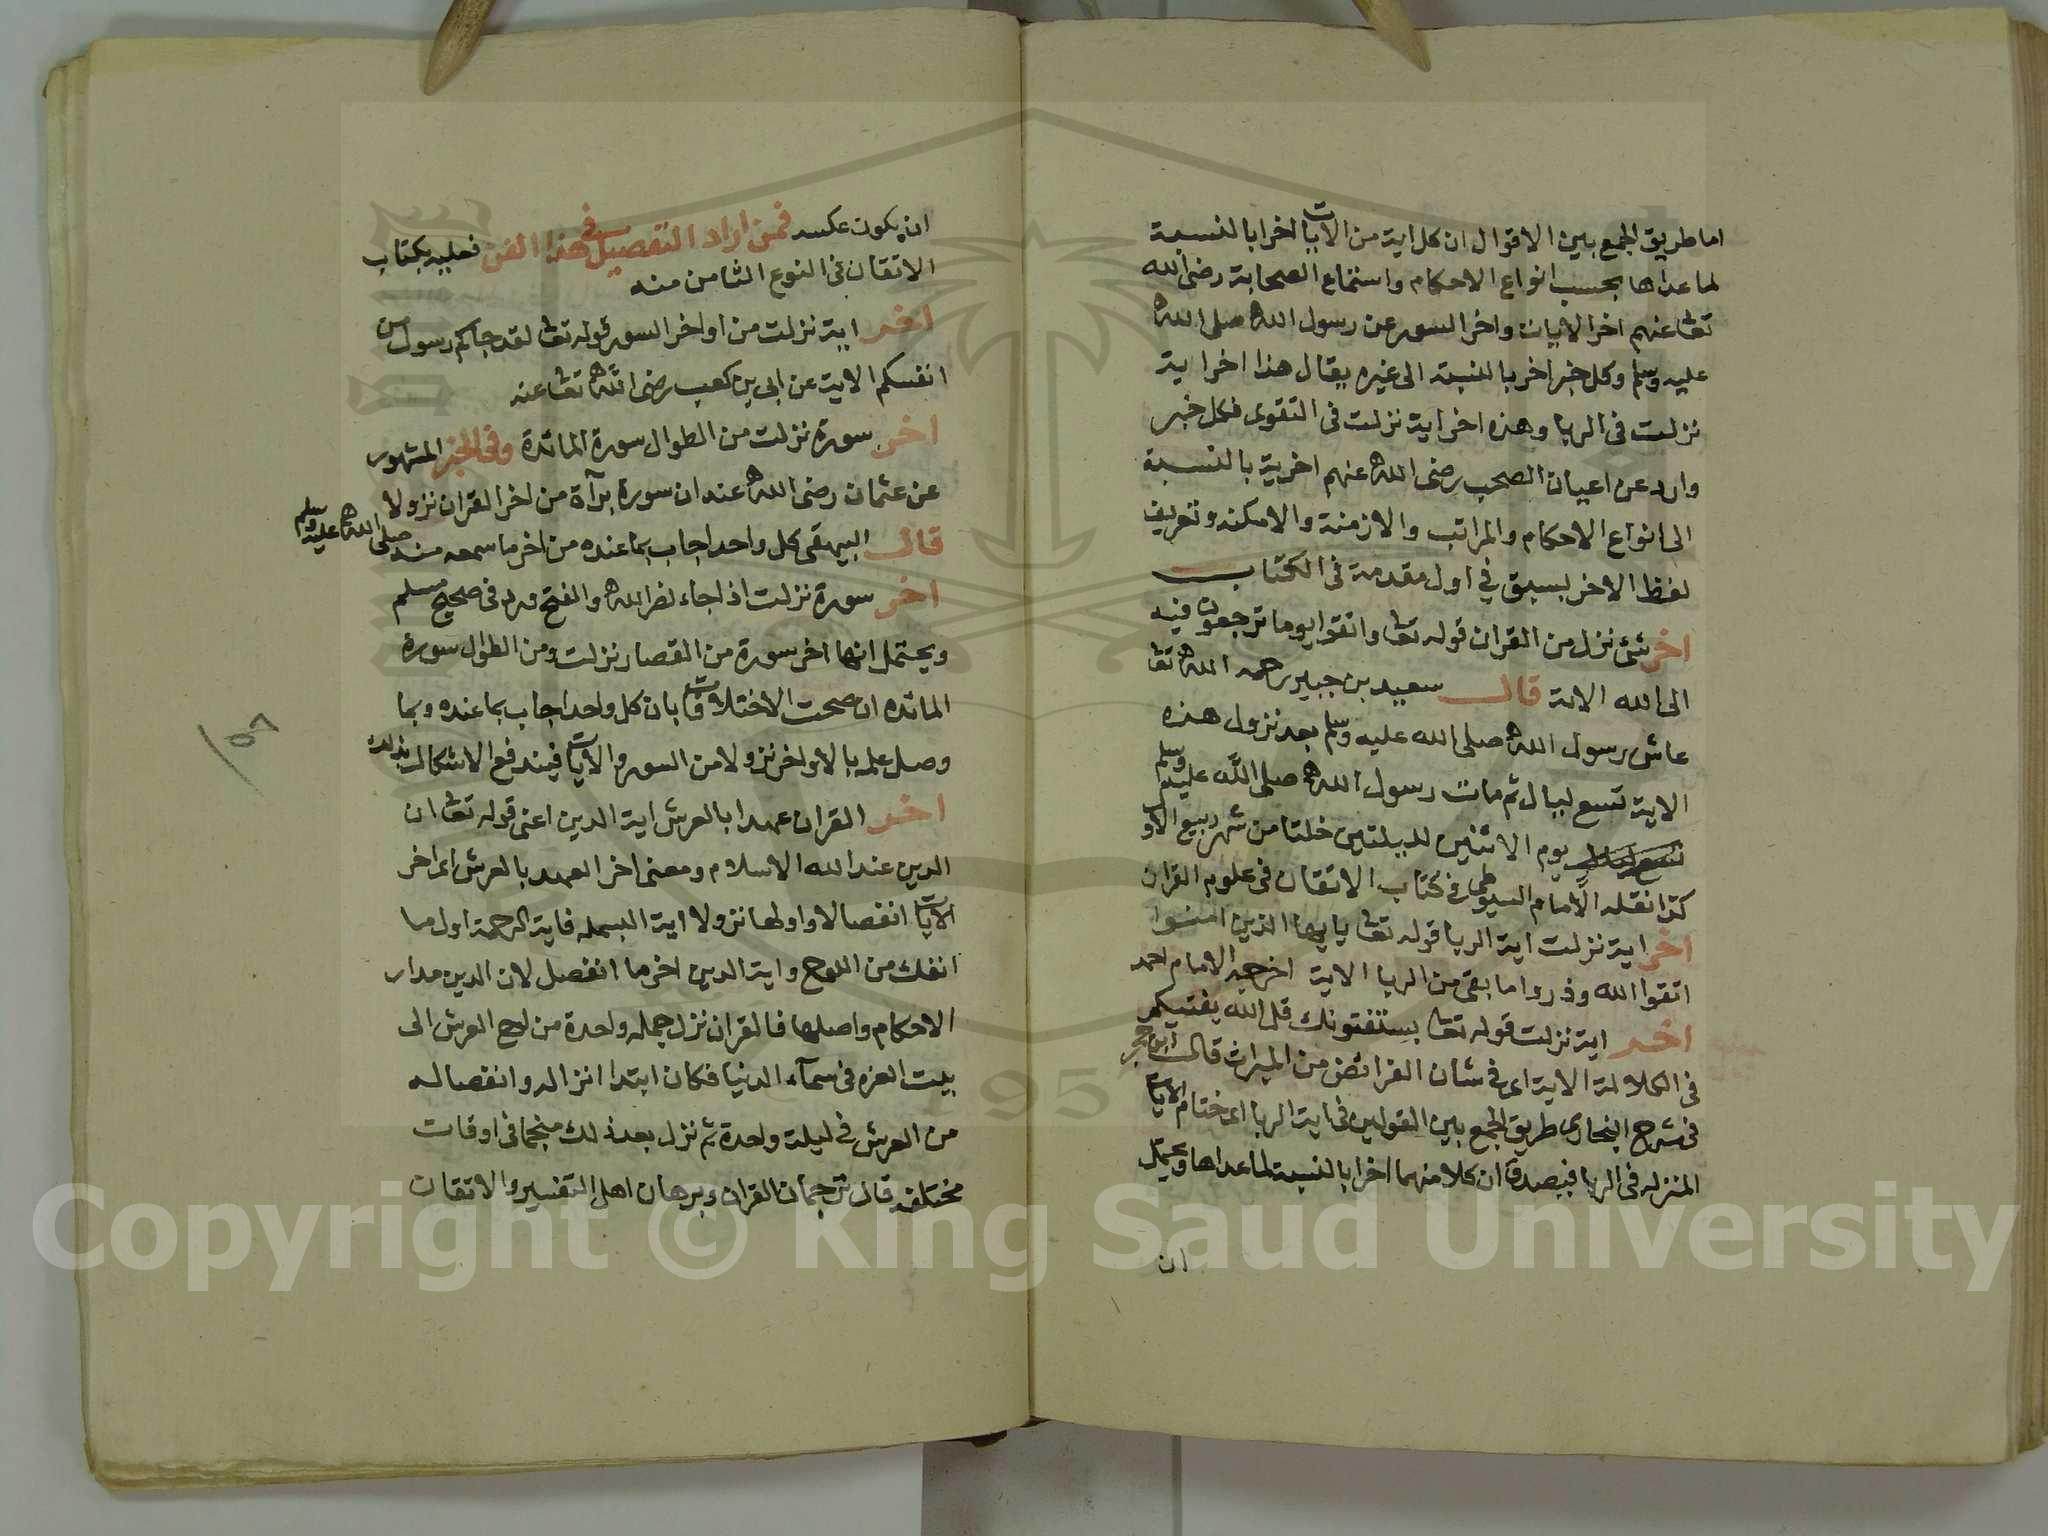 اما طريق الجمع بين الاقوال ان كل اية من الايات اخرا بالنسبة
لما عداها بحسب انواع الاحكام واستماع الصحابة رضى الله
تعا عنهم اخر الايات واخر السور عن رسول الله صلى الله
عليه وسلم وكل خبر اخر بالنسبة الى غيره يقال هذا اخر اية
نزلت فى الربا وهذه اخر اية نزلت فى التقوى فكل خبر
وارد عن اعيان الصحب رضى الله عنهم اخرية بالنسبة
الى انواع الاحكام والمراتب والازمنة والامكنه وتعريف
لفظ الاخر يسبق في اول مقدمة فى الكتاب
اخر شئ نزل من القران قوله تعا واتقوا يوما ترجعون فيه
الى الله الاية قال سعيد بن جبير رحمه الله تعا
عاش رسول الله صلى الله عليه وسلم بعد نزول هذه
الاية تسع ليال ثم مات رسول الله صلى الله عليه وسلم
يوم الاثنين لليلتين خلتا من شهر ربيع الاول
كذا نقله الامام السيوطى فى كتاب الاتقان فى علوم القران
اخر اية نزلت اية الربا قوله تعا يا يها الذين امنوا
اتقوا الله وذروا ما بقى من الربا الاية اخرجه الامام احمد
اخر اية نزلت قوله تعا يستفتونك قل الله يفتيكم
فى الكلالة الاية اى فى شان الفرائض من الميراث قال ابن حجر
فى شرح البخارى طريق الجمع بين القولين فى اية الربا اى ختام الايات
المنزله فى الربا فيصدق ان كلا منهما اخرا بالنسبة لما عداها ويحتمل
ان
ان يكون عكسه فمن اراد التفصيل فى هذا الفن فعليه بكتاب
الاتقان فى النوع الثامن منه
اخر اية نزلت من اواخر السور قوله تعا لقد جاكم رسول من
انفسكم الاية عن ابى بن كعب رضى الله تعا عنه
اخر سورة نزلت من الطوال سورة المائدة وفى الخبر المشهور
عن عثمان رضى الله عنه ان سورة برآة من اخر القران نزولا
قال البيهقى كل واحد اجاب بما عنده من اخر ما سمعه منه صلى الله عليه وسلم
اخر سورة نزلت اذا جاء نصر الله والفتح ورد فى صحيح مسلم
ويحتمل انها اخر سورة من القصار نزلت ومن الطوال سورة
المائده ان صحت الاختلافات بان كل واحد اجاب بما عنده وبما
وصل علمه بالاواخر نزولا من السور والايات فيندفع الاشكال بذلك
اخر القران عهدا بالعرش اية الدين اعنى قوله تعا ان
الدين عند الله الاسلام ومعنى اخر العهد بالعرش اى اخر
الايات انفصالا واولها نزولا اية البسمله فاية الرحمة اول ما
انفك من اللوح واية الدين اخر ما انفصل لان الدين مدار
الاحكام واصلها فالقران نزل جمله واحدة من لوح العرش الى
بيت العزه فى سمآء الدنيا فكان ابتدا انزاله وانفصاله
من العرش فى ليلة واحدة ثم نزل بعد ذلك منجما فى اوقات
مختلفه قال ترجمان القران وبرهان اهل التفسير والاتقان
Copyright © King Saud University